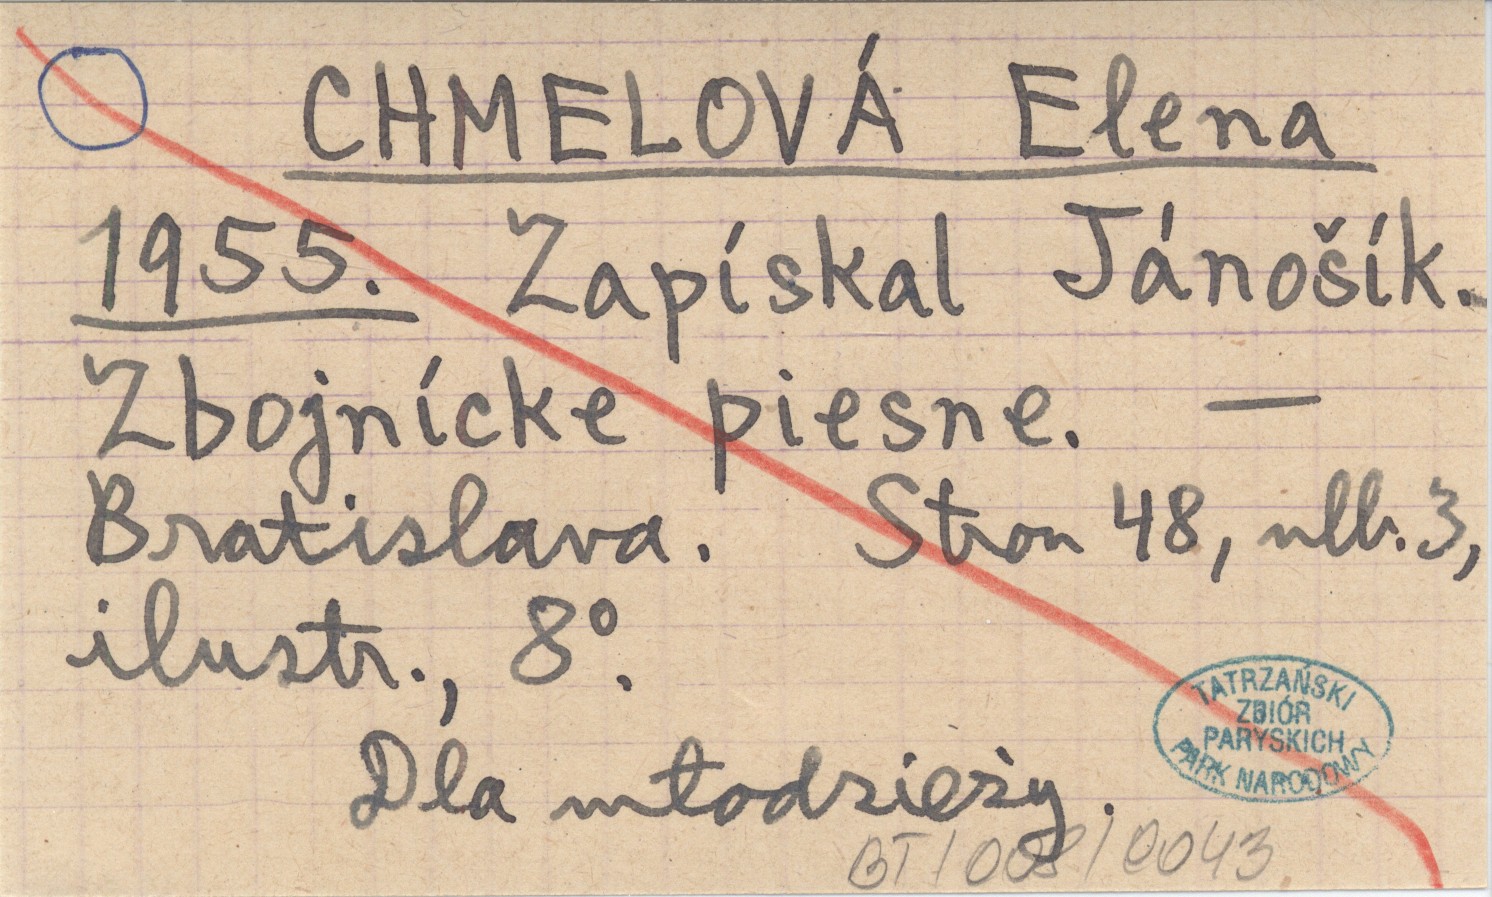 CHMELOVÁ Elena
1955. Zapískal Jánošík.
Zbojnícke piesne. —
Bratislava. Stron 48, nlb. 3,
ilustr., 8º.
Dla młodzieży.
TATRZAŃSKI
ZBIÓR
PARYSKICH
PARK NARODOWY
BT/008/0043